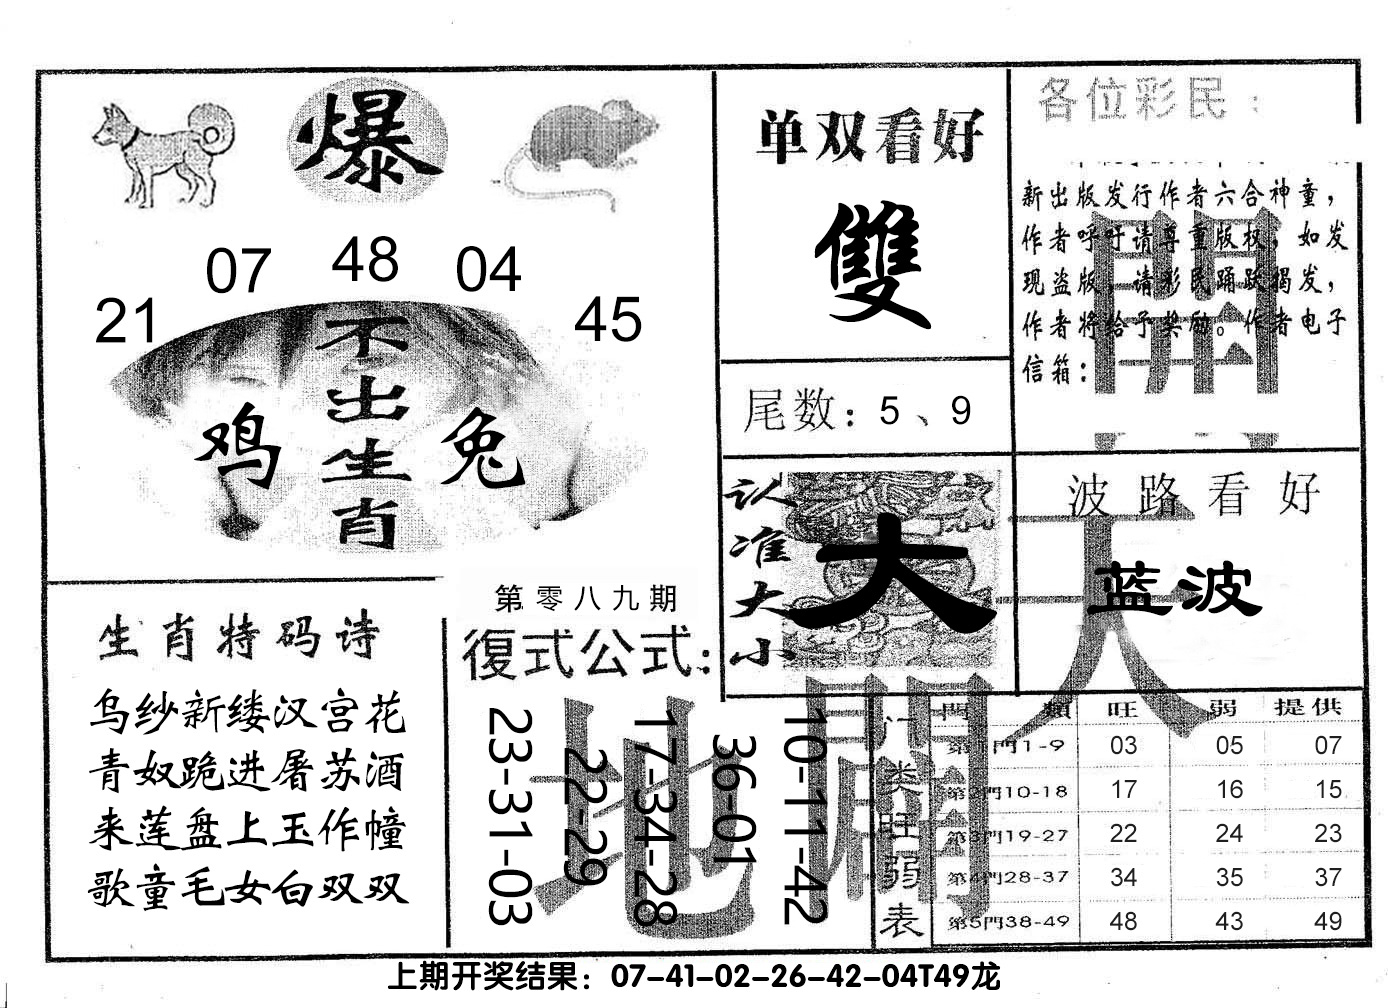 爆
07 48 04
21 45
不出生肖
鸡 兔
单双看好
雙
尾数：5、9
各位彩民：
新出版发行作者六合神童，
作者呼吁请尊重版权，如发
现盗版，请彩民踊跃揭发，
作者将给予奖励。作者电子
信箱：
開
认准大小
大
波路看好
蓝波
天
生肖特码诗
乌纱新缕汉宫花
青奴跪进屠苏酒
来莲盘上玉作幢
歌童毛女白双双
第零八九期
復式公式：
23-31-03
22-29
17-34-28
36-01
10-11-42
地
開
门类旺弱表
門類 旺 弱 提供
第1門1-9 03 05 07
第2門10-18 17 16 15
第3門19-27 22 24 23
第4門28-37 34 35 37
第5門38-49 48 43 49
上期开奖结果：07-41-02-26-42-04T49龙